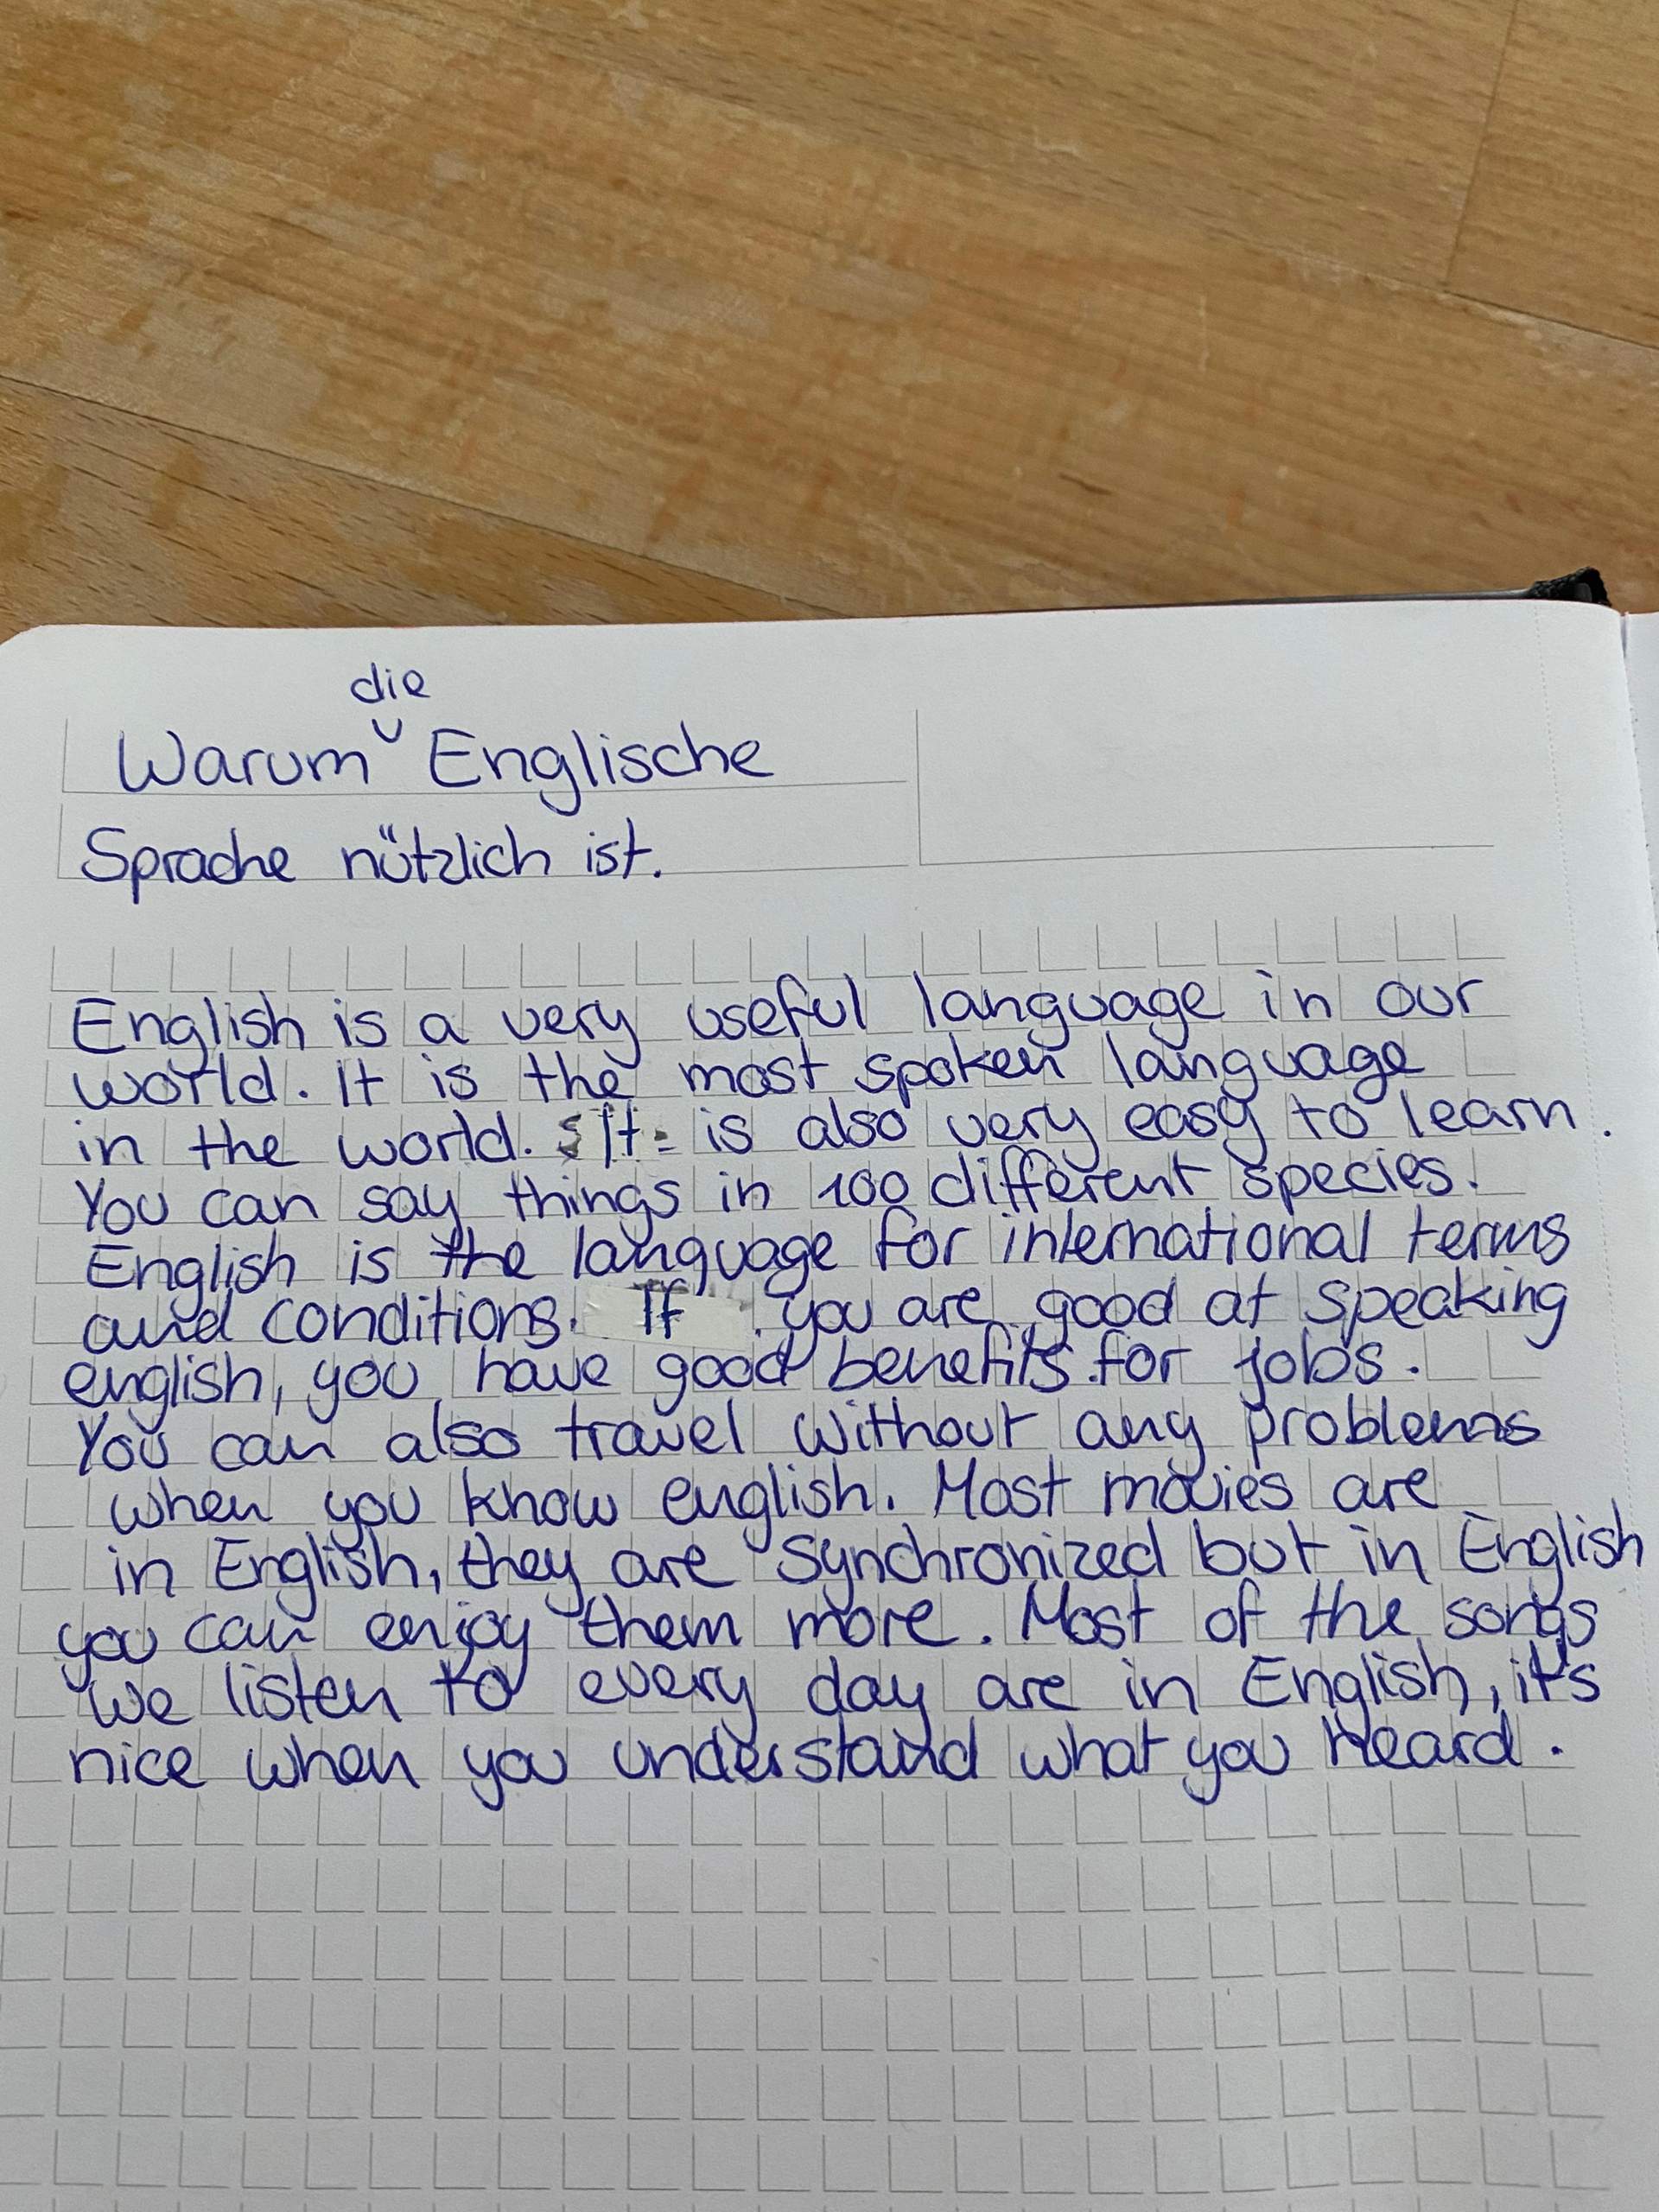 Warum die Englische
Sprache nützlich ist.
English is a very useful language in our
world. It is the most spoken language
in the world. It is also very easy to learn.
You can say things in 100 different species.
English is the language for international terms
and conditions. If you are good at speaking
english, you have good benefits for jobs.
You can also travel without any problems
when you know english. Most movies are
in English, they are synchronized but in English
you can enjoy them more. Most of the songs
we listen to every day are in English, it's
nice when you understand what you heard.